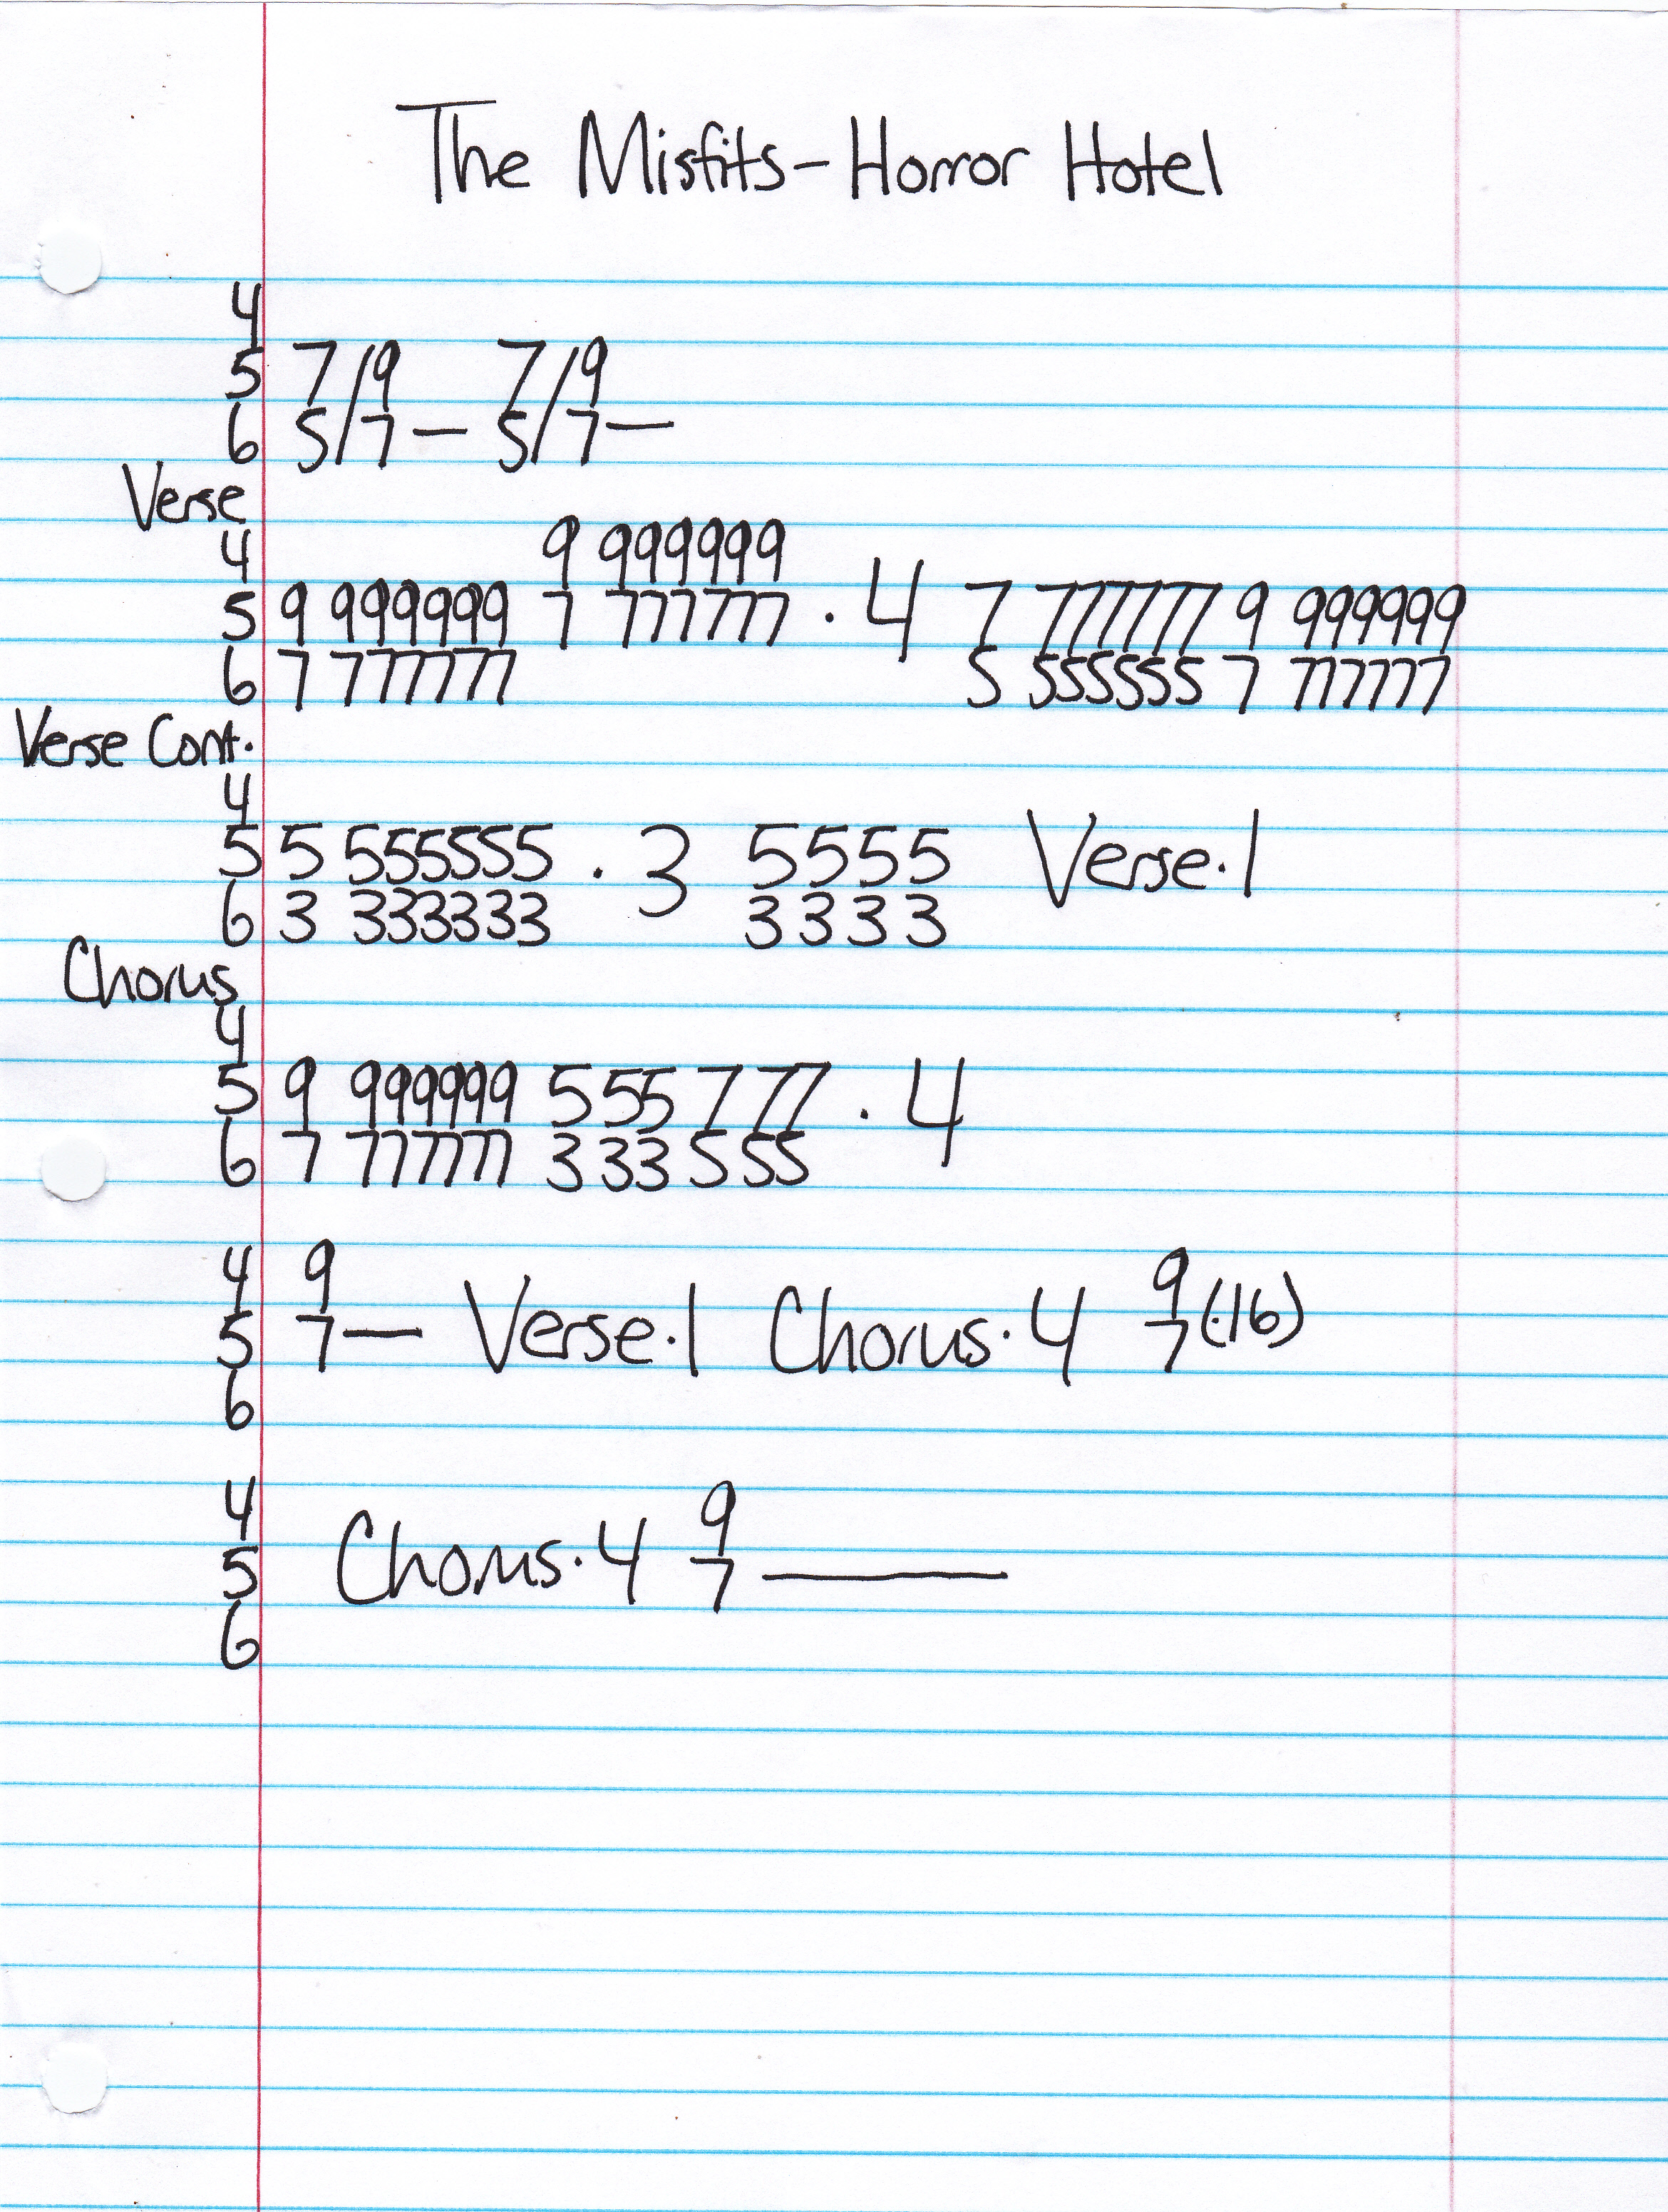 The Misfits - Horror Hotel
4
5 7/9 7/9
6 5/7 — 5/7 —
Verse
4 9 999999
5 9 999999 7 777777 · 4 7 777777 9 999999
6 7 777777 5 555555 7 777777
Verse Cont.
4
5 5 555555 · 3 5555 Verse·1
6 3 333333 3333
Chorus
4
5 9 999999 5 55 7 77 · 4
6 7 777777 3 33 5 55
4 9 9
5 7 — Verse·1 Chorus·4 7(·16)
6
4 9
5 Chorus·4 7 —
6